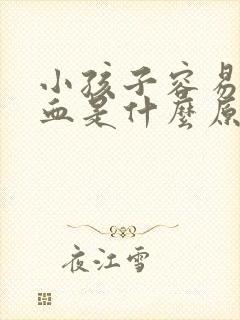 小孩子容易
血是什麼原
夜江雪